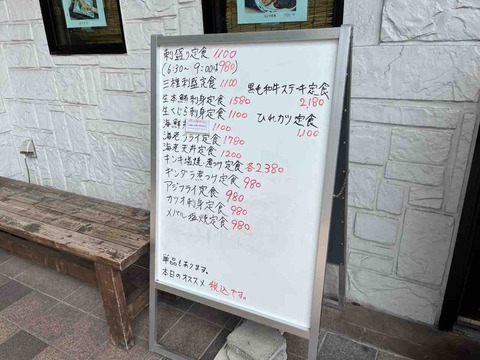 刺盛り定食 1100
(6:30~9:00は980)
三種刺盛定食 1,100
生本鮪刺身定食 1580
生くじら刺身定食 1100
海鮮 1100
海老フライ定食 1780
海老天丼定食 1200
キンキ塩焼・煮つけ定食 各2380
ギンダラ煮つけ定食 980
アジフライ定食 980
カツオ刺身定食 980
メバル塩焼定食 980
黒毛和牛ステーキ定食
2,180
ひれカツ定食
1,100
単品もあります。
本日のオススメ 税込です。